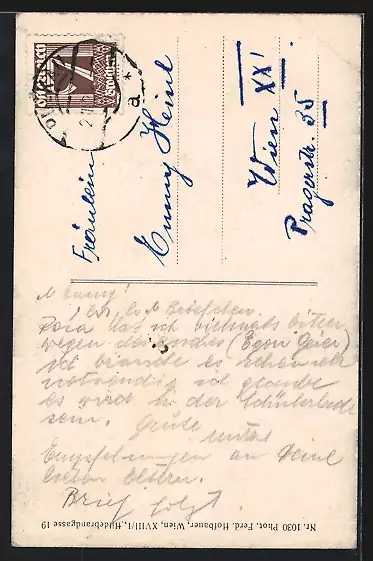 Fräulein
Emmy Heinl
Wien XXI
Pragerstr. 35
7
Groschen
a
Emmy!
Brieferl
lass ich vielmals bitten
wegen des (Egon Geier)
ich brauche es schon sehr
notwendig ich glaube
es wird in der Schülerlade
sein. Grüße
Empfehlungen an Deine
lieben Eltern.
Brief folgt
Nr. 1030 Phot. Ferd. Hofbauer, Wien, XVIII/1, Hildebrandgasse 19